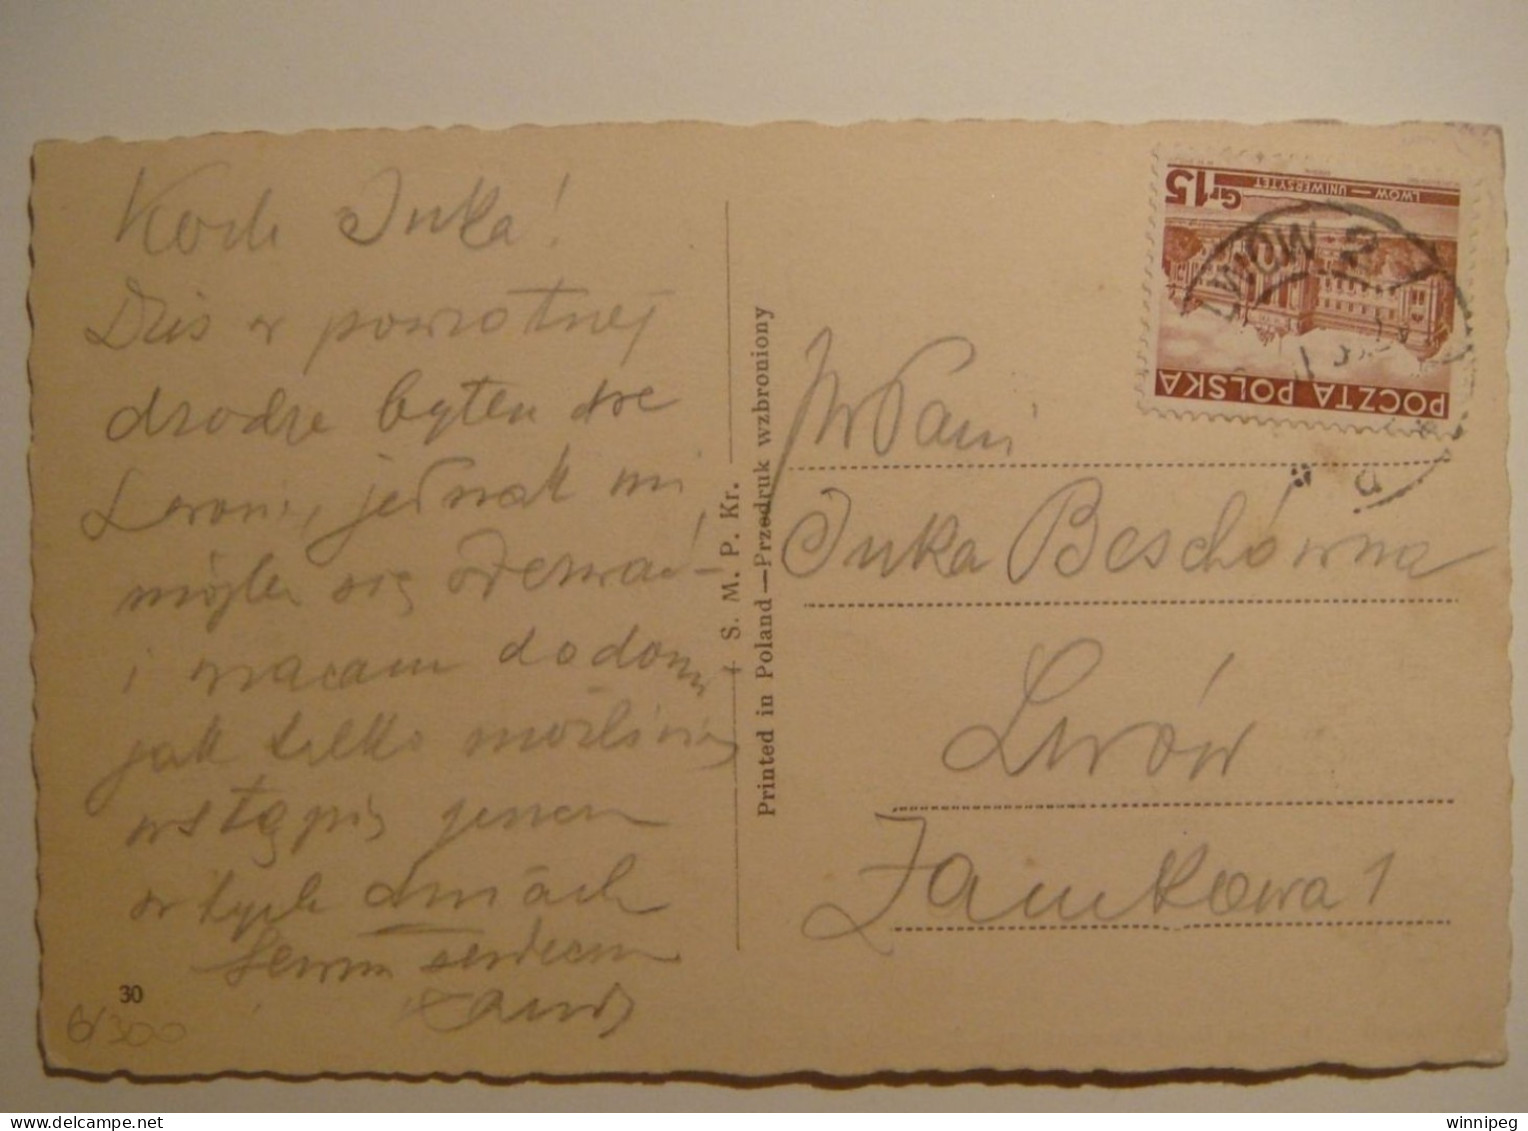 Koch Inka!
Dziś w powrotnej
drodze byłem we
Lwowie, jednak nie
mogłem się
i wracam do domu
jak tylko możliwe
wstąpię jeszcze
w tych dniach
serdeczne
30
6/300
+ S. M. P. Kr.
Printed in Poland — Przedruk wzbroniony
Gr 15
LWÓW — UNIWERSYTET
POCZTA POLSKA
LWÓW 2
WPani
Inka Beschówna
Lwów
Zamkowa 1
winnipeg